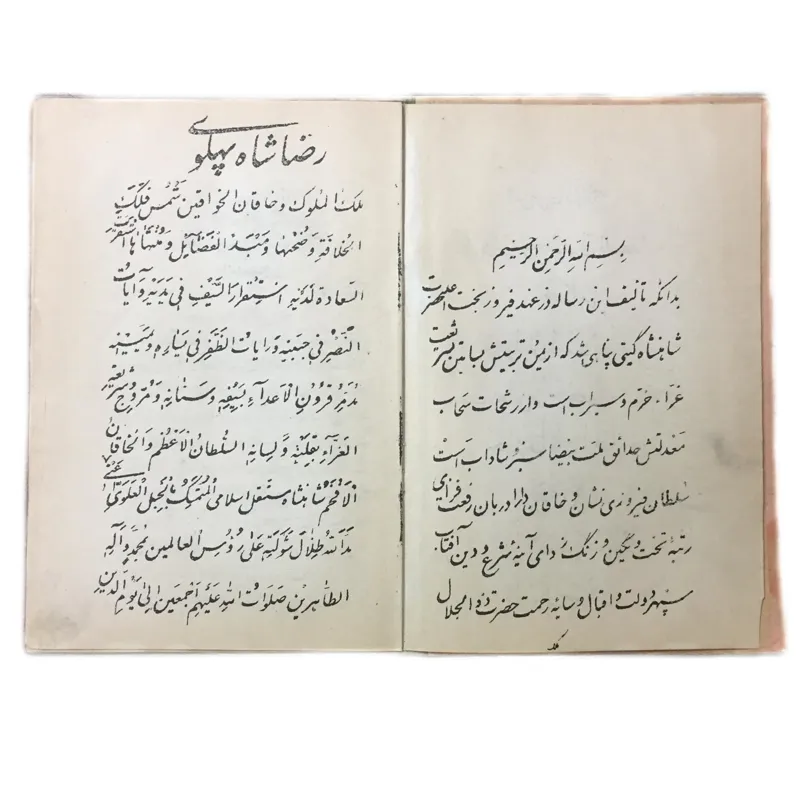 بِسْمِ اللهِ الرَّحْمٰنِ الرَّحِیمِ
بدانکه تألیف این رساله در عهد فیروز بخت اعلیحضرت
شاهنشاه گیتی پناهی شد که از یمن تربیتش بساتین شریعت
غراء خرم و سیراب است و از رشحات سحاب
معدلتش حدائق ملت بیضا سبز و شاداب است
سلطان فیروزی نشان و خاقان دارا دربان رفعت فزای
رتبهٔ تخت و نگین و زنگ زدای آینهٔ شرع و دین آفتاب
سپهر دولت و اقبال و سایهٔ رحمت حضرت ذو الجلال
ملک
رضا شاه پهلوی
ملك الملوك و خاقان الخواقین شمس فلک
الخلافة و ضحیها و مبدء الفضایل و منتهاها استقرت
السعادة لدیه استقرار السیف فی یدیه و آیات
النصر فی جبینه و رایات الظفر فی یساره و یمینه
مدمر قرون الاعداء بسیفه و سنانه و مروج شریعته
الغراء بقلبه و لسانه السلطان الاعظم و الخاقان
الافخم شاهنشاه مستقل اسلامی المتمسک بالحبل العلوی
مد الله ظلال شوکته علی رؤس العالمین بمحمد و آله
الطاهرین صلوات الله علیهم اجمعین الی یوم الدین